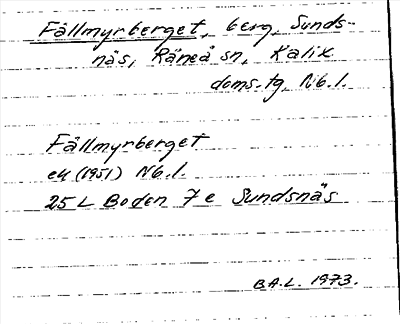 Fällmyrberget, berg, Sunds-
näs, Råneå sn, Kalix
doms.tg, Nb.l.
Fällmyrberget
ek (1951) Nb.l.
25 L Boden 7 e Sundsnäs
B.A.L. 1973.